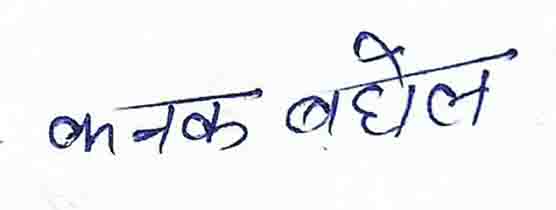 कनक बघेल